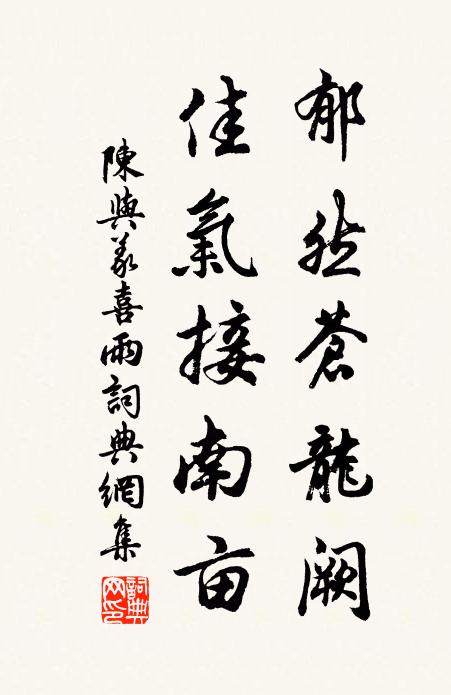 郁然蒼龍闕
佳氣接南亩
陳與義喜雨詞典網集
詞典网印